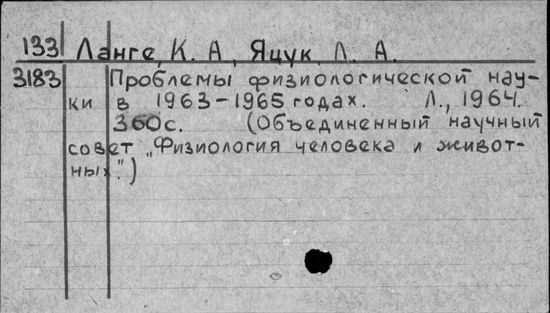 133 Ланге, К. А., Яцук Л. А.
3183 Проблемы физиологической нау-
ки в 1963-1965 годах. Л., 1964.
360с. (Объединенный научный
совет „Физиология человека и живот-
ных".)